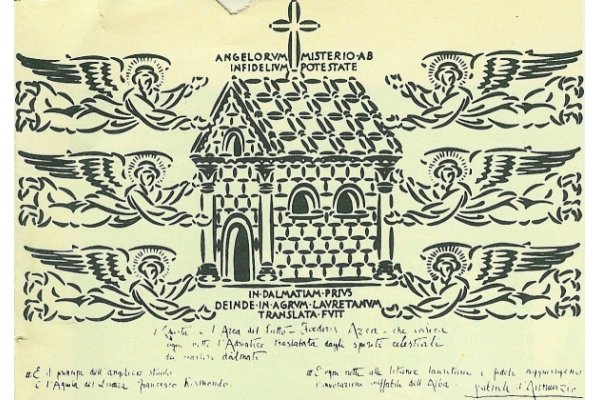 ANGELORVM MISTERIO·AB
INFIDELIVM POTESTATE
IN·DALMATIAM·PRIVS
DEINDE·IN·AGRVM·LAVRETANVM
TRANSLATA·FVIT
Questa è l'Arca del Patto - Foederis Arca - che
ogni notte l'Adriatico traslatata dagli spiriti celestiali
dei marinai dalmati
E il principe dell'angelico stuolo
è l'Aquila del Dinara Francesco Rismondo.
E ogni notte alle litanie lauretane i fedeli aggiungono
l'invocazione ineffabile
Gabriele d'Annunzio